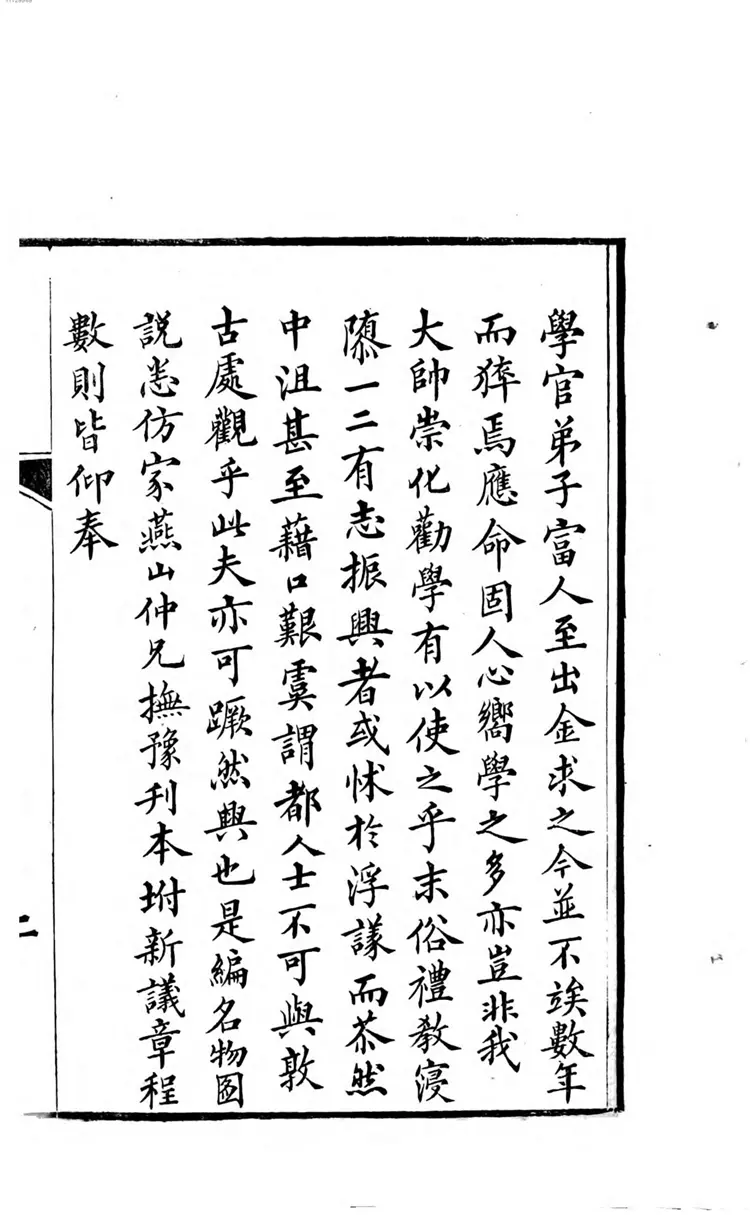 學官弟子富人至出金求之今並不竢數年
而猝焉應命固人心嚮學之多亦豈非我
大帥崇化勸學有以使之乎末俗禮教寖
隳一二有志振興者或怵於浮議而苶然
中沮甚至藉口艱虞謂都人士不可與敦
古處觀乎此夫亦可蹶然興也是編名物圖
說悉仿家燕山仲兄撫豫刋本坿新議章程
數則皆仰奉
二